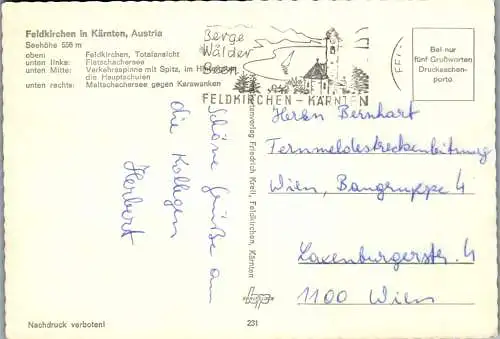 Feldkirchen in Kärnten, Austria
Seehöhe 556 m
oben: Feldkirchen, Totalansicht
unten links: Flatschachersee
unten Mitte: Verkehrsspinne mit Spitz, im
die Hauptschulen
unten rechts: Maltschachersee gegen Karawanken
Berge
Wälder
Seen
FELDKIRCHEN - KÄRNTEN
Bei nur
fünf Grußworten
Drucksachen-
porto
Schöne Grüße an
die Kollegen
Herbert
Kartenverlag Friedrich Kreil, Feldkirchen, Kärnten
Herrn Bernhart
Fernmeldestreckenleitung
Wien, Baugruppe 4
Laxenburgerstr. 4
1100 Wien
Nachdruck verboten!
231